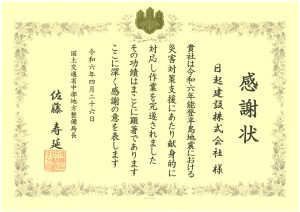 感謝状
日起建設株式会社 様
貴社は令和六年能登半島地震における
災害対策支援にあたり献身的に
対応し作業を完遂されました
その功績はまことに顕著であります
ここに深く感謝の意を表します
令和六年四月二十六日
国土交通省中部地方整備局長
佐藤 寿延